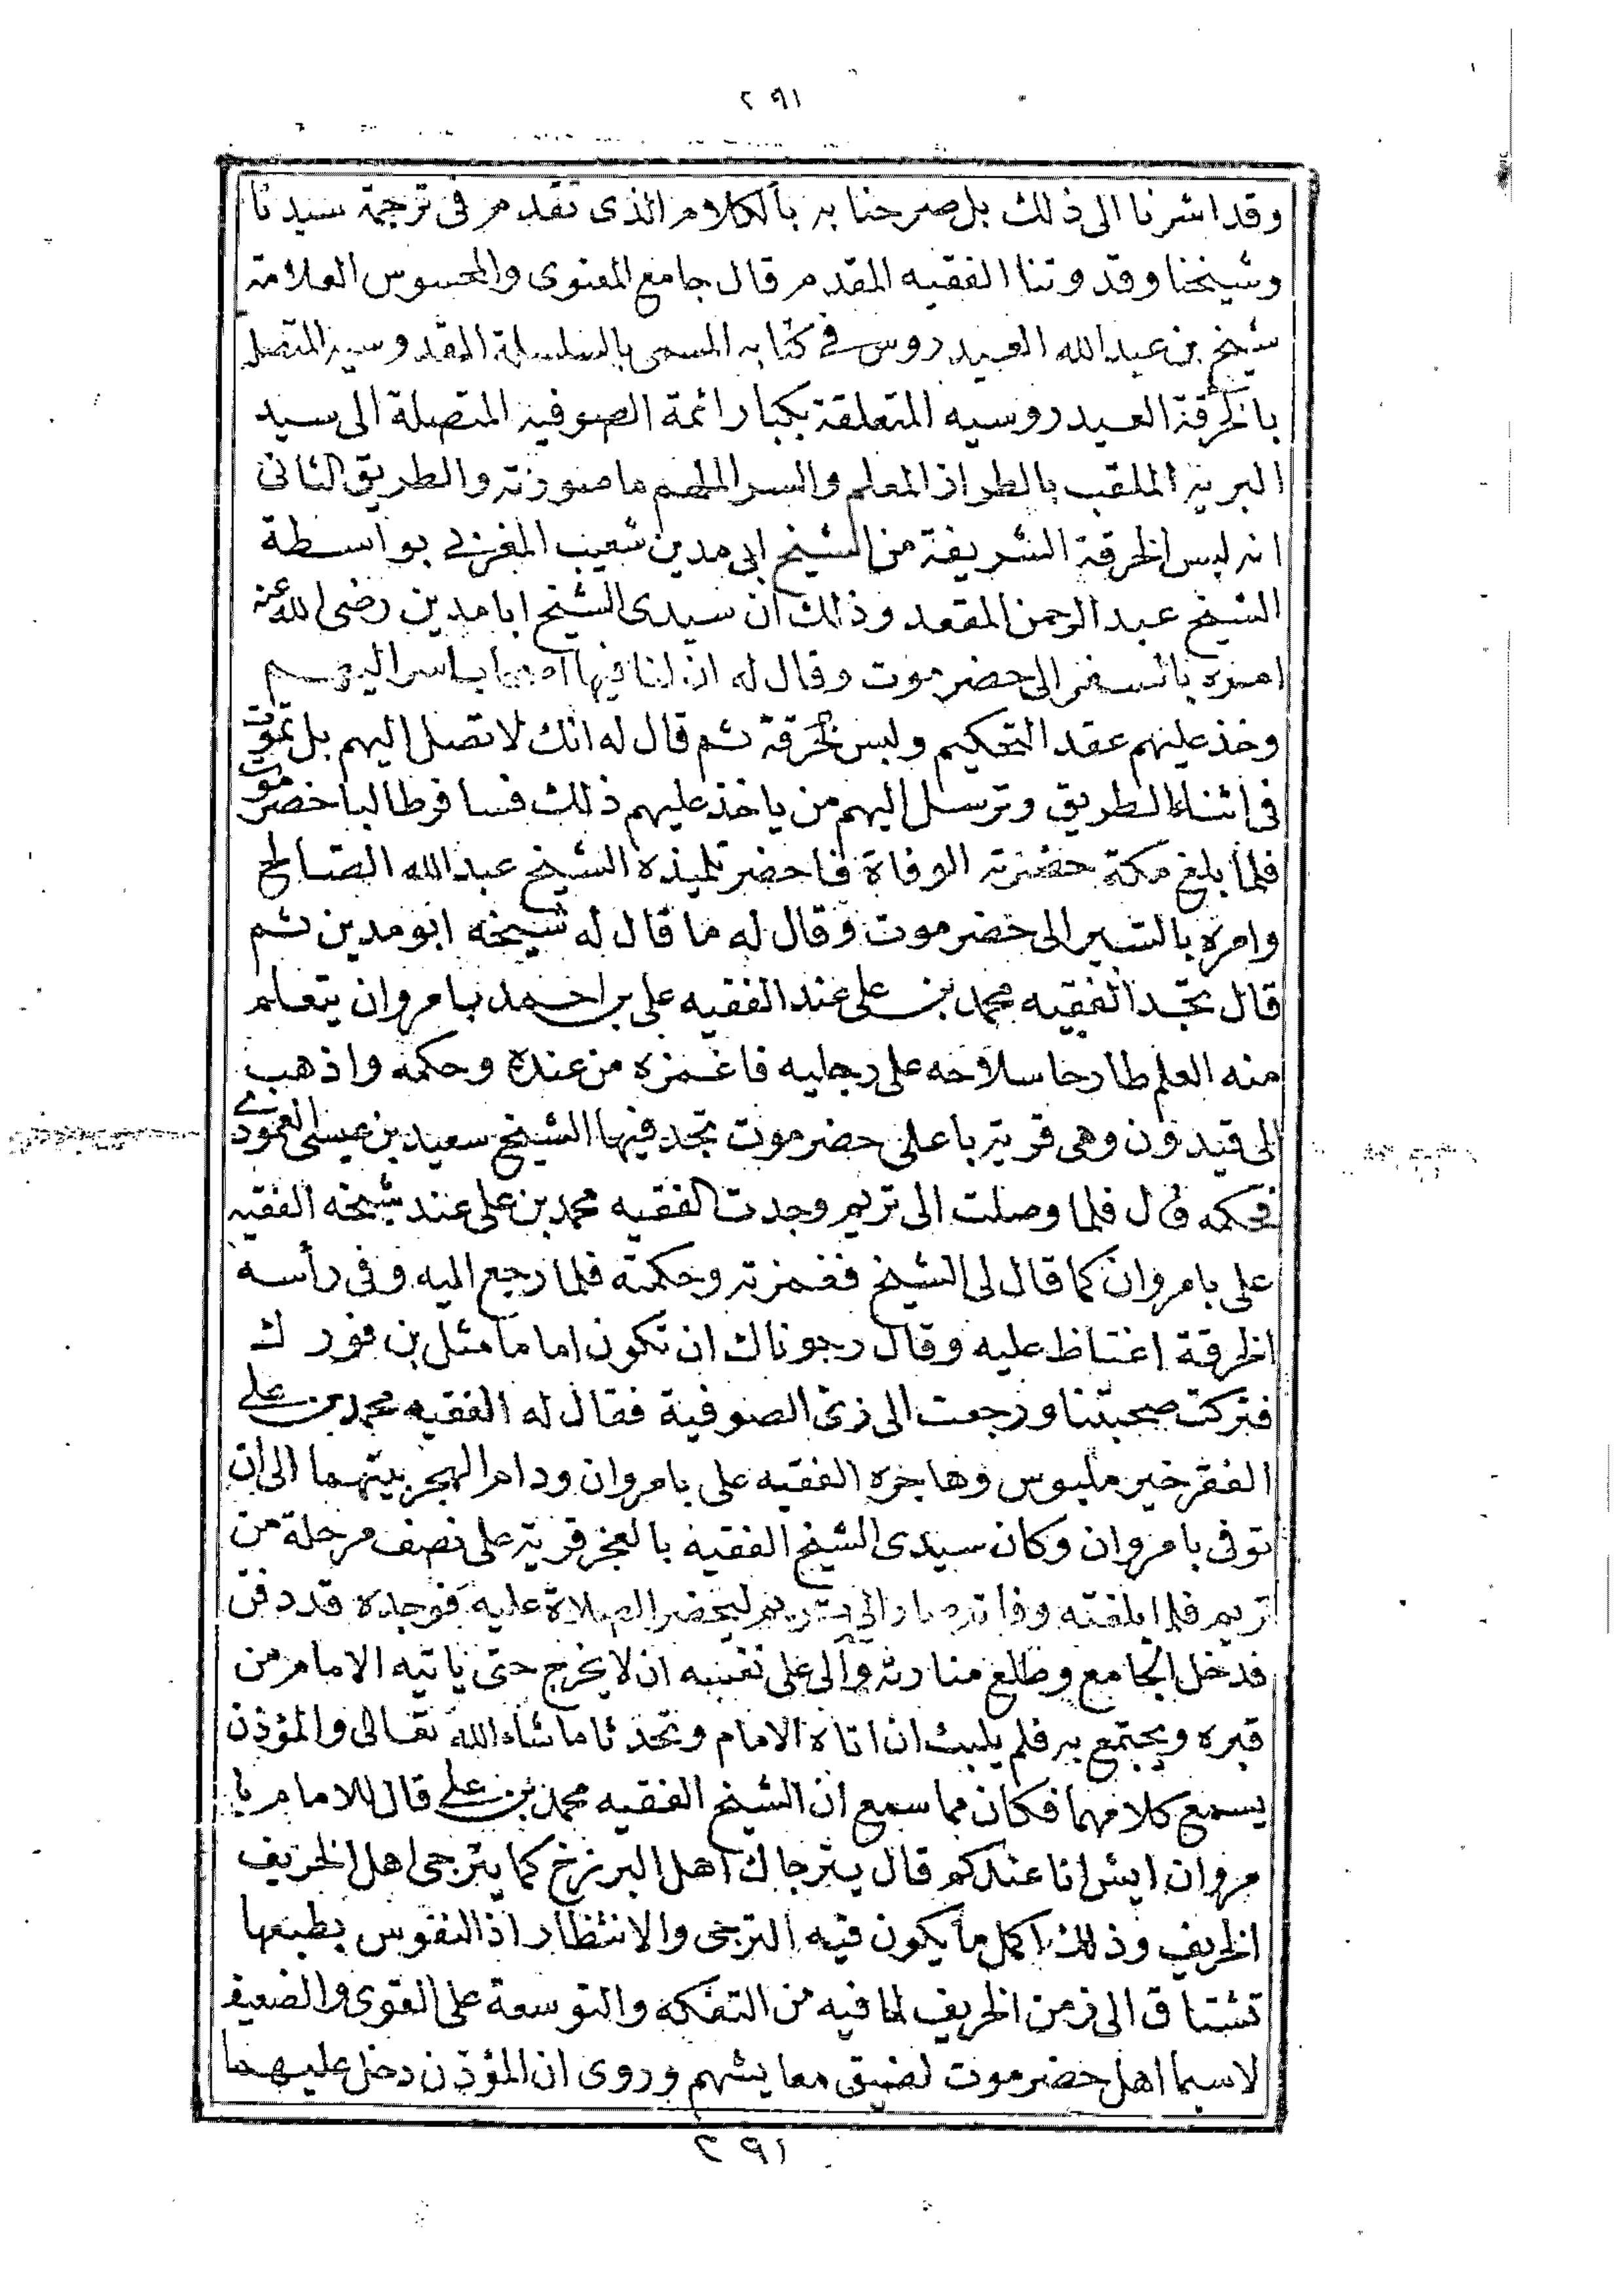 ٢٩١
وقد اشرنا الى ذلك بل صرحنا به بالكلام الذى تقدم فى ترجمة سيدنا
وشيخنا وقدوتنا الفقيه المقدم قال جامع المعنوى والمحسوس العلامة
شيخ بن عبد الله العيدروس فى كتابه المسمى بالسلسلة القدوسيه المتصل
بالخرقة العيدروسيه المتعلقة بكبار ائمة الصوفيه المتصلة الى سيد
البريه الملقب بالطراز المعلم والسر الملهم ما صورته والطريق الثانى
انه لبس الخرقة الشريفة من الشيخ ابى مدين شعيب المغربى بواسطة
الشيخ عبد الرحمن المقعد وذلك ان سيدى الشيخ ابا مدين رضى الله عنه
امره بالسفر الى حضرموت وقال له ان لنا فيها اصحابا سر اليهم
وخذ عليهم عقد التحكيم ولبس الخرقة ثم قال له انك لا تصل اليهم بل تموت
فى اثناء الطريق وترسل اليهم من ياخذ عليهم ذلك فسافر طالبا حضرموت
فلما بلغ مكة حضرته الوفاة فاحضر تلميذه الشيخ عبد الله الصالح
وامره بالسير الى حضرموت وقال له ما قال له شيخه ابو مدين ثم
قال تجد الفقيه محمد بن على عند الفقيه على بن احمد بامروان يتعلم
منه العلم طارحا سلاحه على رجليه فاغمزه من عنده وحكمه واذهب
الى قيدون وهى قرية باعلى حضرموت تجد فيها الشيخ سعيد بن عيسى العمودى
فحكمه قال فلما وصلت الى تريم وجدت الفقيه محمد بن على عند شيخه الفقيه
على بامروان كما قال لى الشيخ فغمزته وحكمته فلما رجع اليه وفى رأسه
الخرقة اغتاظ عليه وقال رجوناك ان تكون اماما مثل بن فورك
فتركت صحبتنا ورجعت الى زى الصوفية فقال له الفقيه محمد بن على
الفقر خير ملبوس وهاجره الفقيه على بامروان ودام الهجر بينهما الى ان
توفى بامروان وكان سيدى الشيخ الفقيه بالعجز قرية على نصف مرحلة من
تريم فلما بلغته وفاته صار الى تريم ليحضر الصلاة عليه فوجده قد دفن
فدخل الجامع وطلع منارته وآلى على نفسه ان لا يخرج حتى ياتيه الامام من
قبره ويجتمع به فلم يلبث ان اتاه الامام وتحدثا ما شاء الله تعالى والمؤذن
يسمع كلامهما فكان مما سمع ان الشيخ الفقيه محمد بن على قال للامام با
مروان ايش انا عندكم قال يترجاك اهل البرزخ كما يترجى اهل الخريف
الخريف وذلك اكمل ما يكون فيه الترجى والانتظار اذ النفوس بطبعها
تشتاق الى زمن الخريف لما فيه من التفكه والتوسعة على القوى والضعيف
لاسيما اهل حضرموت لضيق معايشهم وروى ان المؤذن دخل عليهما
٢٩١